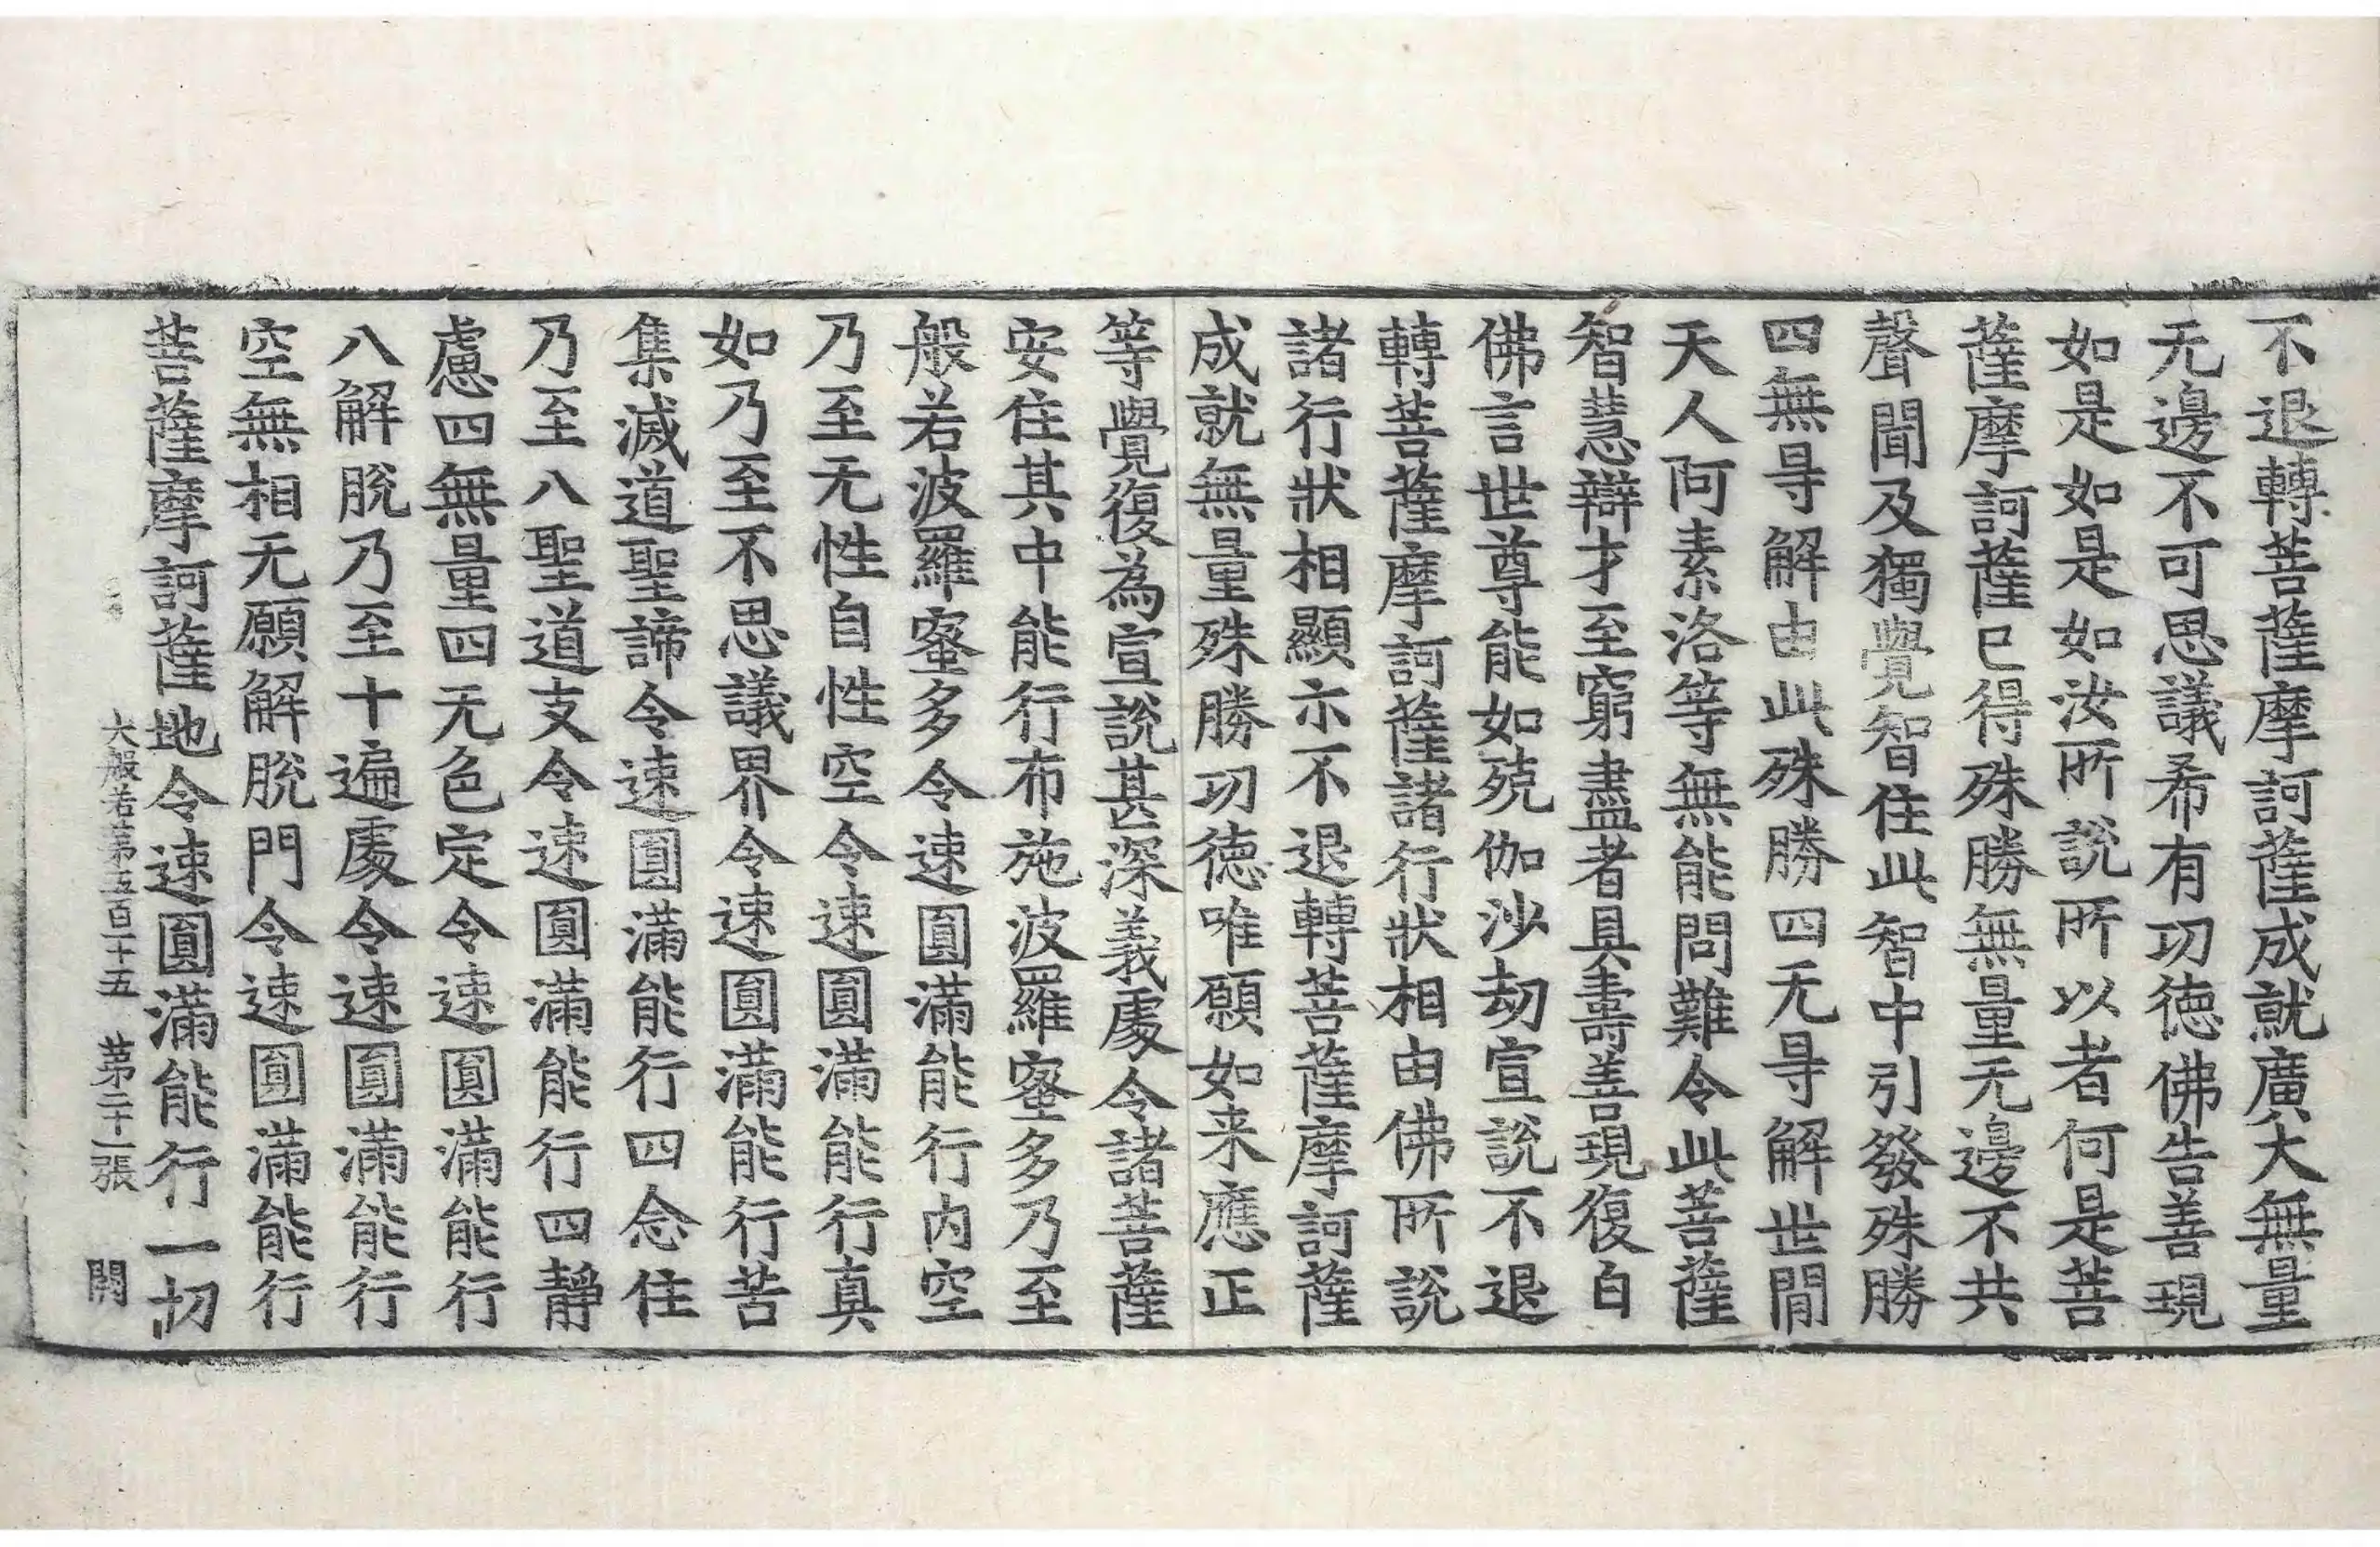 不退轉菩薩摩訶薩成就廣大無量
无邊不可思議希有功德佛告善現
如是如是如汝所說所以者何是菩
薩摩訶薩已得殊勝無量无邊不共
聲聞及獨覺智住此智中引發殊勝
四無㝵解由此殊勝四无㝵解世間
天人阿素洛等無能問難令此菩薩
智慧辯才至窮盡者具壽善現復白
佛言世尊能如殑伽沙劫宣說不退
轉菩薩摩訶薩諸行狀相由佛所說
諸行狀相顯示不退轉菩薩摩訶薩
成就無量殊勝功德唯願如来應正
等覺復為宣說甚深義處令諸菩薩
安住其中能行布施波羅蜜多乃至
般若波羅蜜多令速圓滿能行内空
乃至无性自性空令速圓滿能行真
如乃至不思議界令速圓滿能行苦
集滅道聖諦令速圓滿能行四念住
乃至八聖道支令速圓滿能行四靜
慮四無量四无色定令速圓滿能行
八解脫乃至十遍處令速圓滿能行
空無相无願解脫門令速圓滿能行
菩薩摩訶薩地令速圓滿能行一切
大般若第五百二十五 第二十一張 關